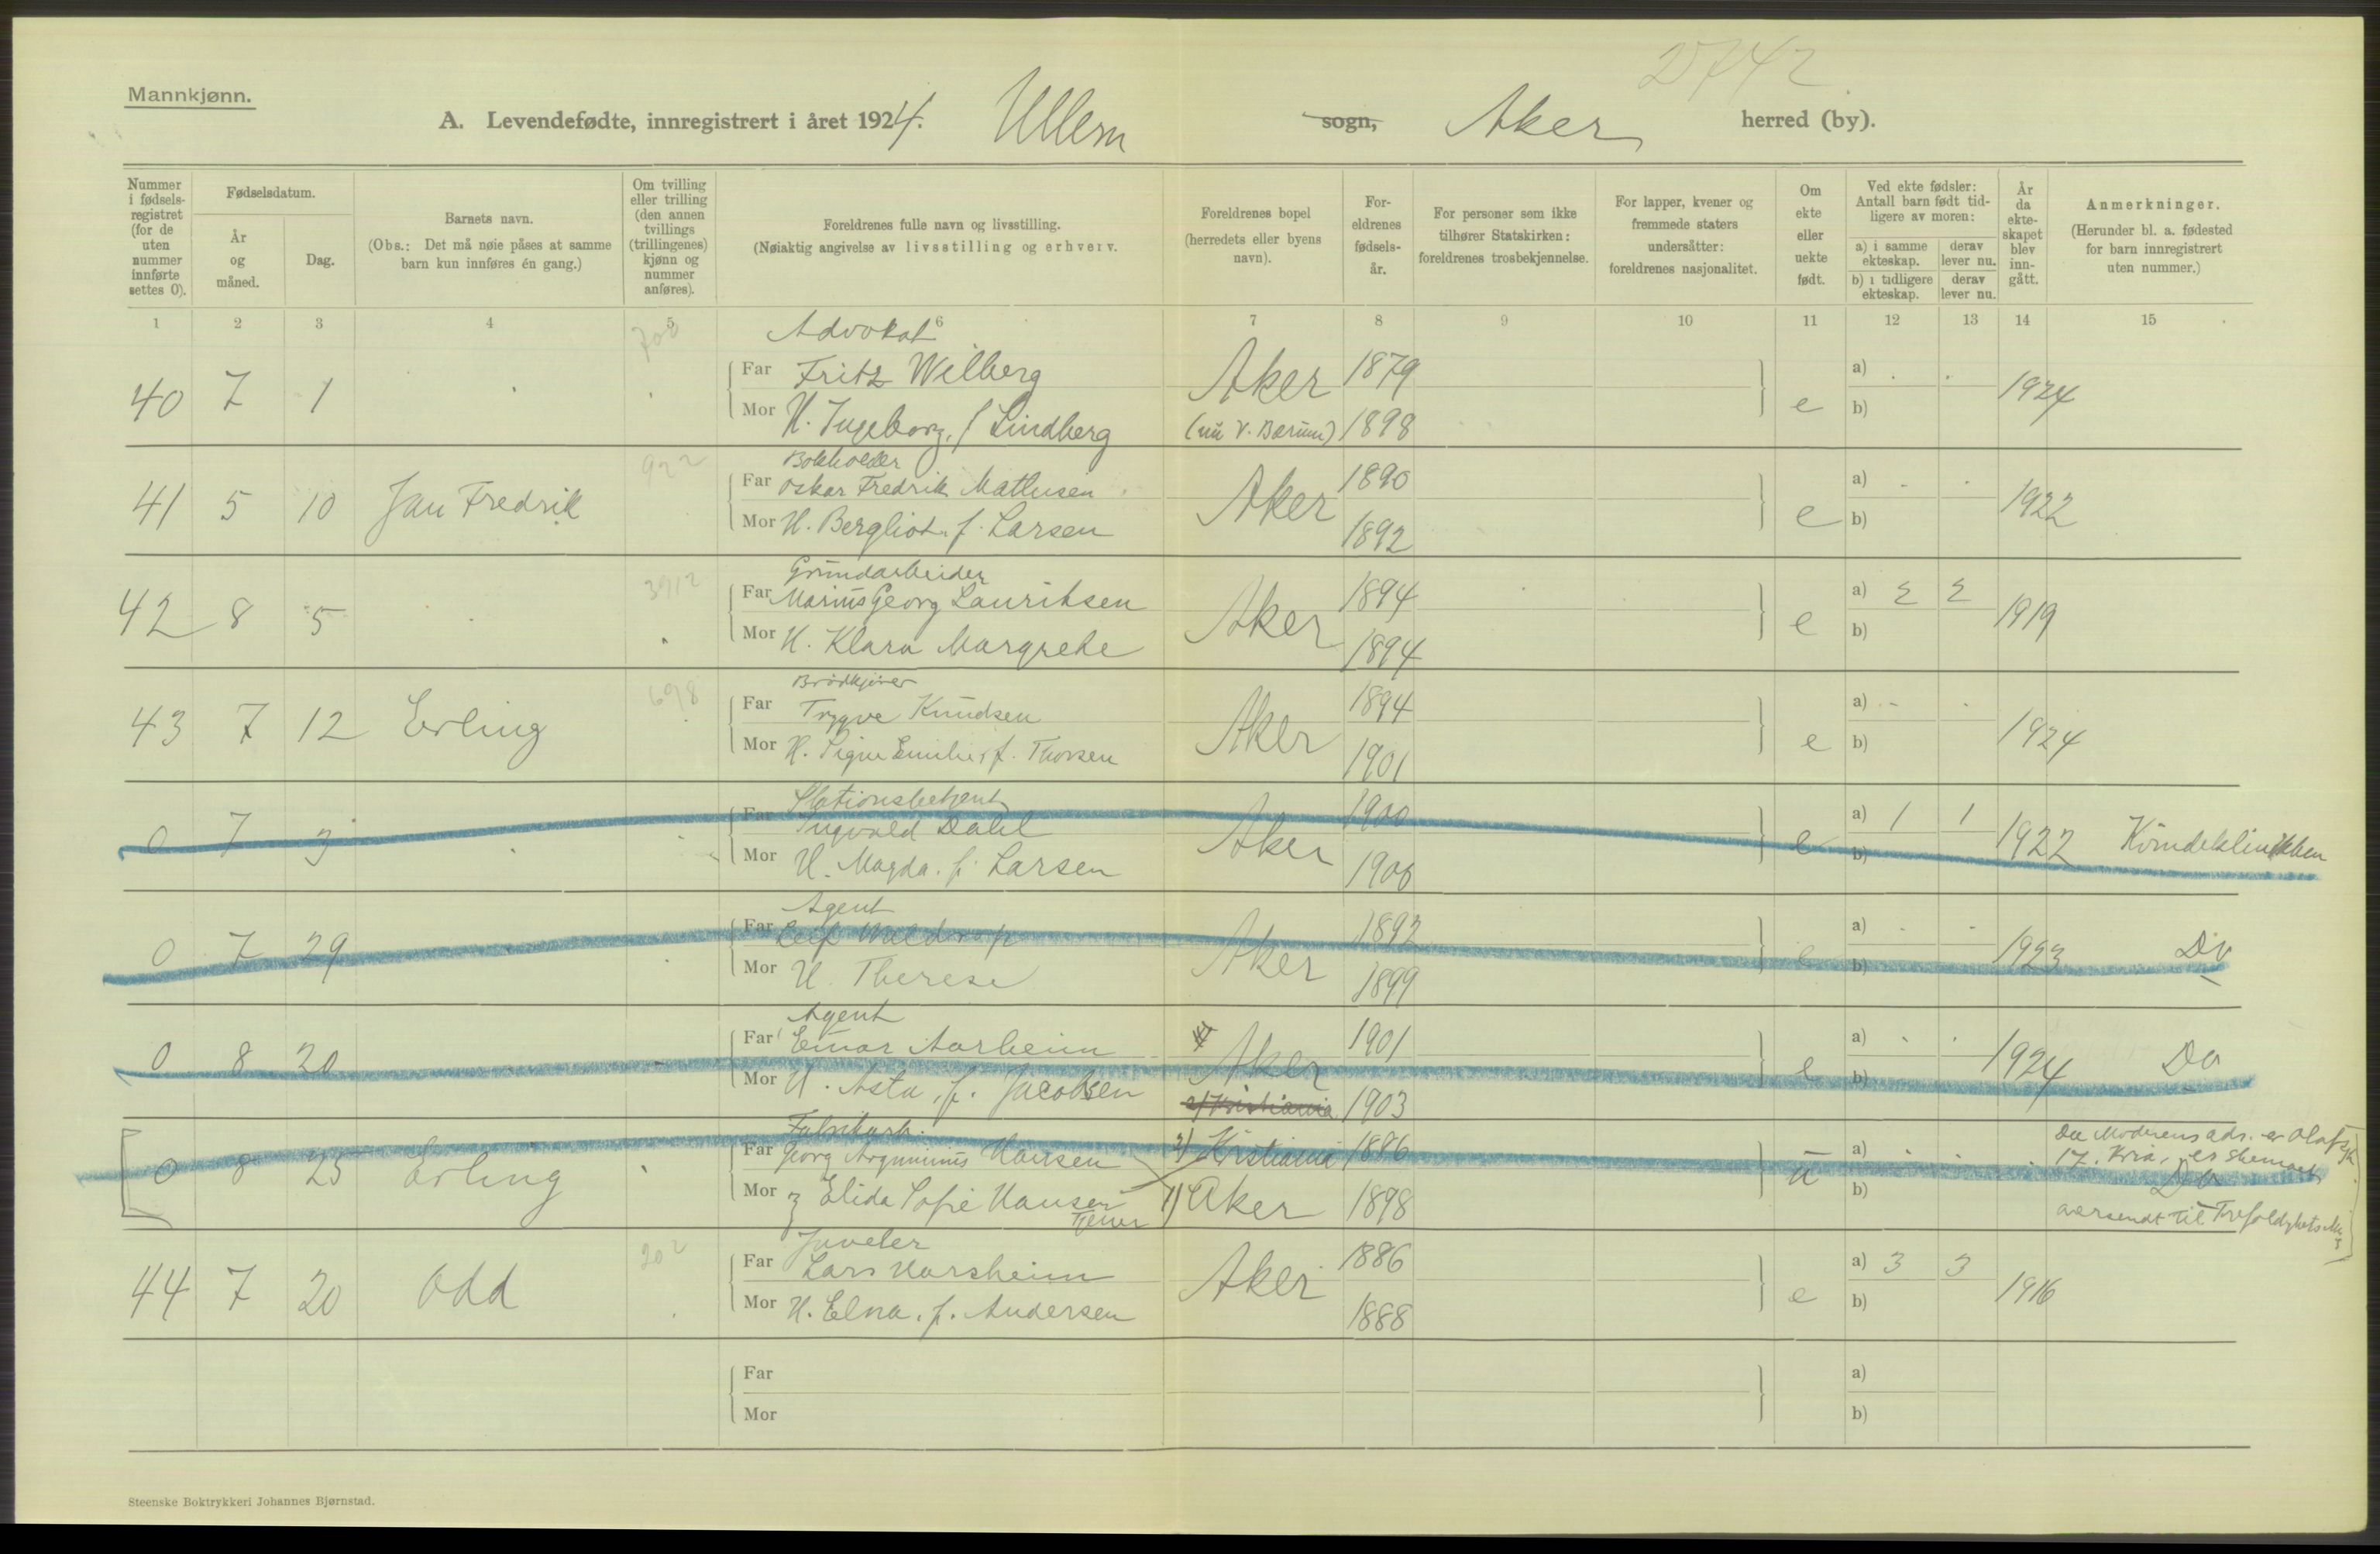 2742
Mannkjønn.
A. Levendefødte, innregistrert i året 1924. Ullern sogn, Aker herred (by).
Nummer i fødselsregistret (for de uten nummer innførte settes 0).
Fødselsdatum.
År og måned.
Dag.
Barnets navn.
(Obs.: Det må nøie påses at samme barn kun innføres én gang.)
Om tvilling eller trilling (den annen tvillings (trillingenes) kjønn og nummer anføres).
Foreldrenes fulle navn og livsstilling.
(Nøiaktig angivelse av livsstilling og erhverv.
Foreldrenes bopel (herredets eller byens navn).
Foreldrenes fødselsår.
For personer som ikke tilhører Statskirken: foreldrenes trosbekjennelse.
For lapper, kvener og fremmede staters undersåtter: foreldrenes nasjonalitet.
Om ekte eller uekte født.
Ved ekte fødsler: Antall barn født tidligere av moren:
a) i samme ekteskap. derav lever nu.
b) i tidligere ekteskap. derav lever nu.
År da ekteskapet blev inngått.
Anmerkninger.
(Herunder bl. a. fødested for barn innregistrert uten nummer.)
1 2 3 4 5 6 7 8 9 10 11 12 13 14 15
700 Advokat
Far Fritz Wilberg Aker 1879 a) . .
40 7 1 e 1924
Mor H. Ingeborg, f Lindberg (nu V. Bærum) 1898 b)
922 Bokholder
Far Oskar Fredrik Mathisen Aker 1890 a) - .
41 5 10 Jan Fredrik e 1922
Mor H. Bergliot. f. Larsen 1892 b)
3912 Grundarbeider
Far Marius Georg Lauritsen Aker 1894 a) 2 2
42 8 5 e 1919
Mor H. Klara Margrethe 1894 b)
698 Brödkjører
Far Trygve Knudsen Aker 1894 a) - .
43 7 12 Erling e 1924
Mor H. Signe Emilie, f. Thorsen 1901 b)
Stationsbetjent
Far Ingvald Dahl Aker 1900 a) 1 1
0 7 3 e 1922 Kvindeklinikken
Mor H. Magda. f. Larsen 1900 b)
Agent
Far Leif Aker 1892 a) . .
0 7 29 e 1923 Do
Mor H. Therese 1899 b)
Agent
Far Einar Aarheim Aker 1901 a) . .
0 8 20 e 1924 Do
Mor H. Asta, f. Jacobsen 2) Kristiania 1903 b)
Fabrikarb.
Far Georg Hansen 2) Kristiania 1886 a) . . .
Da Moderens adr. er Olafs
17. Kria, er skemaet
0 8 25 Erling u Do
Mor Elida Sofie Hansen 1) Aker 1898 b)
Tjener
oversendt til Trefoldighets
202 Juveler
Far Lars Harsheim Aker 1886 a) 3 3
44 7 20 Odd e 1916
Mor H. Elna. f. Andersen 1888 b)
Far a)
Mor b)
Steenske Boktrykkeri Johannes Bjørnstad.